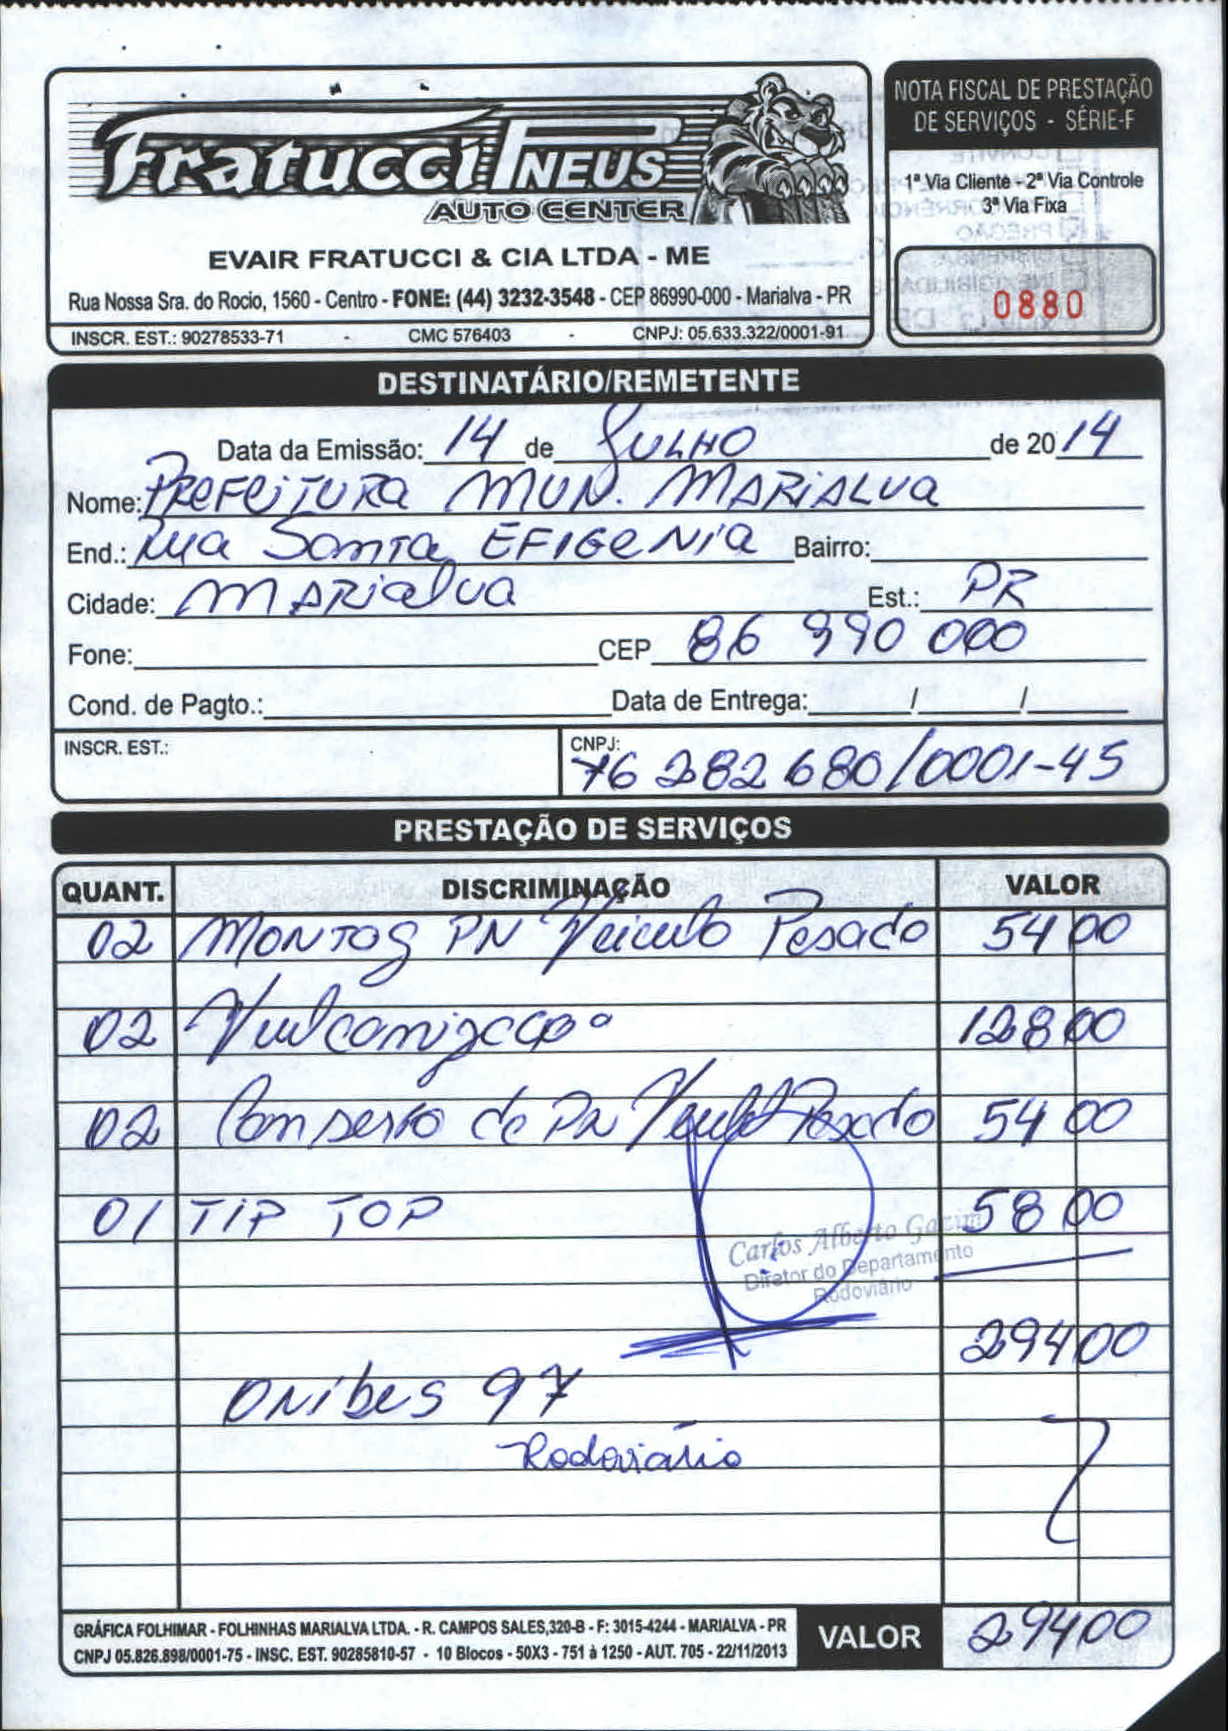 Fratucci PNEUS
AUTO CENTER
EVAIR FRATUCCI & CIA LTDA - ME
Rua Nossa Sra. do Rocio, 1560 - Centro - FONE: (44) 3232-3548 - CEP 86990-000 - Marialva - PR
INSCR. EST.: 90278533-71 - CMC 576403 - CNPJ: 05.633.322/0001-91
NOTA FISCAL DE PRESTAÇÃO
DE SERVIÇOS - SÉRIE-F
1ª Via Cliente - 2ª Via Controle
3ª Via Fixa
0880
DESTINATÁRIO/REMETENTE
Data da Emissão: 14 de JULHO de 2014
Nome: PREFEITURA MUN. MARIALVA
End.: Rua Santa EFIGENIA Bairro:
Cidade: MARIALVA Est.: PR
Fone: CEP 86 990 000
Cond. de Pagto.: Data de Entrega: / /
INSCR. EST.: CNPJ: 76 282 680/0001-45
PRESTAÇÃO DE SERVIÇOS
QUANT. DISCRIMINAÇÃO VALOR
02 MONTAG PN Veiculo Pesado 54 00
02 Vulcanizacao 128 00
02 Conserto de PN Pesado 54 00
01 TIP TOP 58 00
Carlos Alberto
Diretor do Departamento
Rodoviário
294 00
ONIBUS 97
Rodoviário
GRÁFICA FOLHIMAR - FOLHINHAS MARIALVA LTDA. - R. CAMPOS SALES,320-B - F: 3015-4244 - MARIALVA - PR
CNPJ 05.826.898/0001-75 - INSC. EST. 90285810-57 - 10 Blocos - 50X3 - 751 à 1250 - AUT. 705 - 22/11/2013
VALOR 294 00